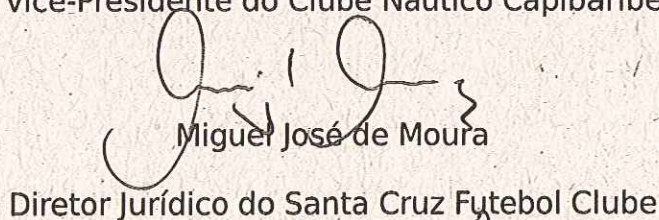 Vice-Presidente do Clube Náutico Capibaribe
Miguel José de Moura
Diretor Jurídico do Santa Cruz Futebol Clube